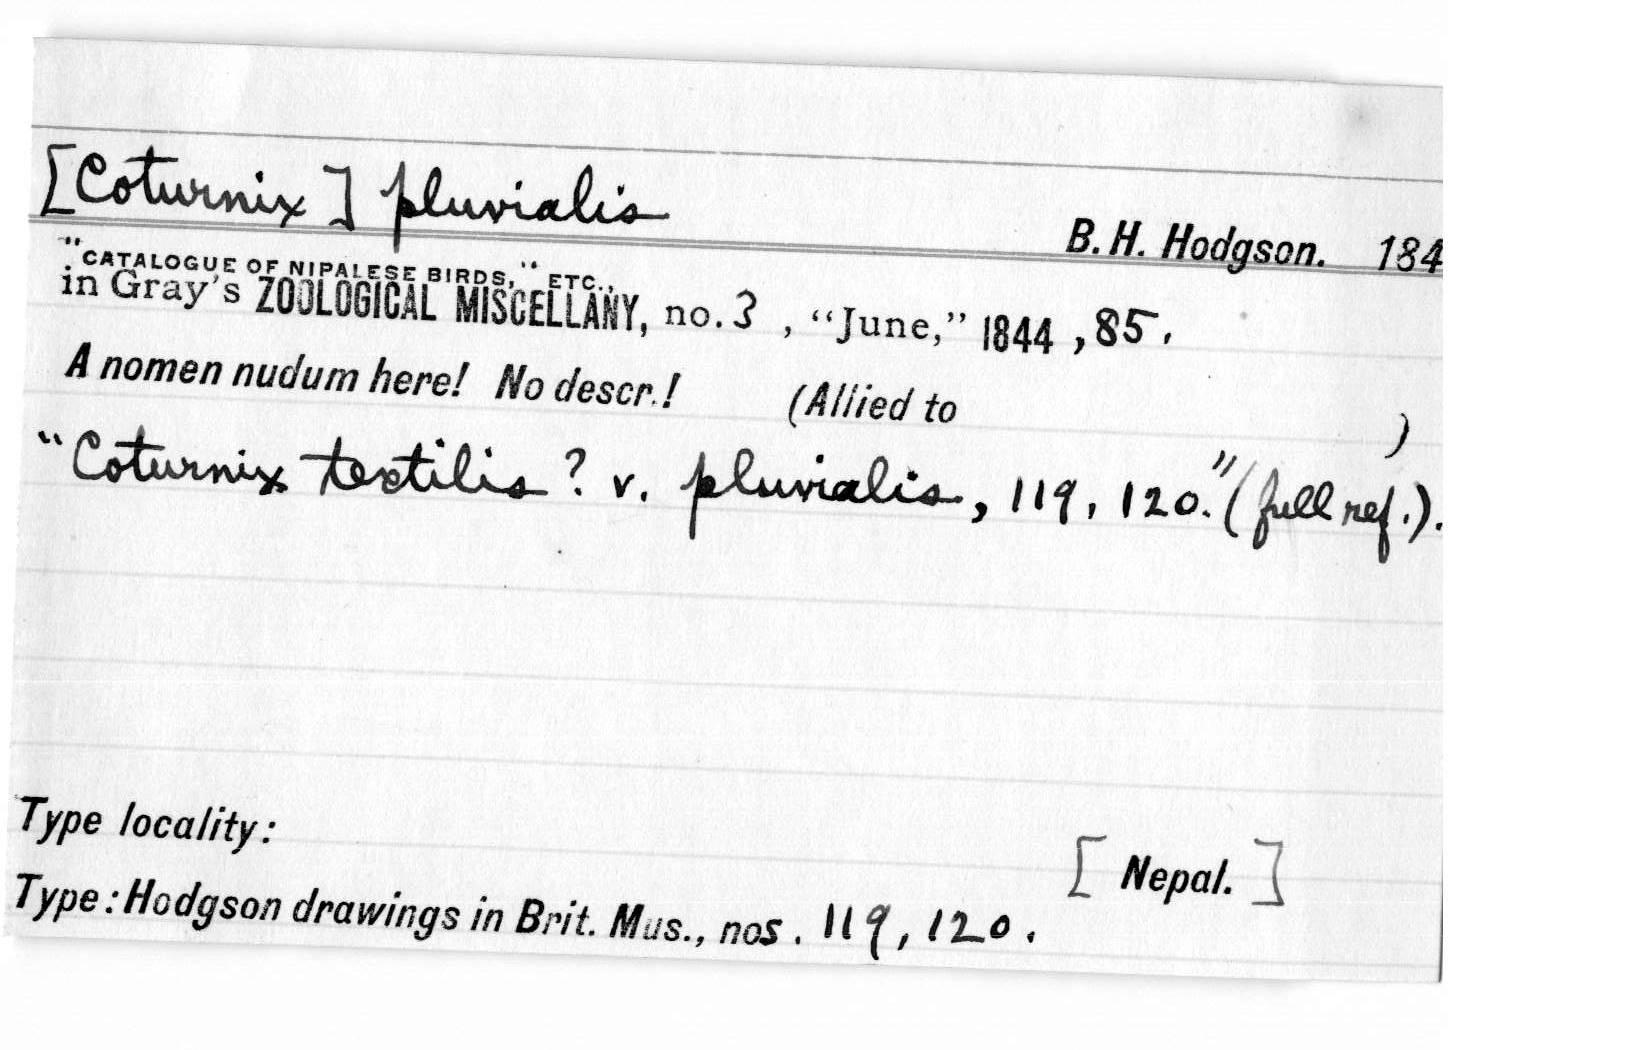 [Coturnix] pluvialis
B. H. Hodgson. 184
"CATALOGUE OF NIPALESE BIRDS," ETC.,
in Gray's ZOOLOGICAL MISCELLANY, no. 3, "June," 1844, 85.
A nomen nudum here! No descr.! (Allied to )
"Coturnix textilis? v. pluvialis, 119, 120." (full ref.).
Type locality: [Nepal.]
Type: Hodgson drawings in Brit. Mus., nos. 119, 120.